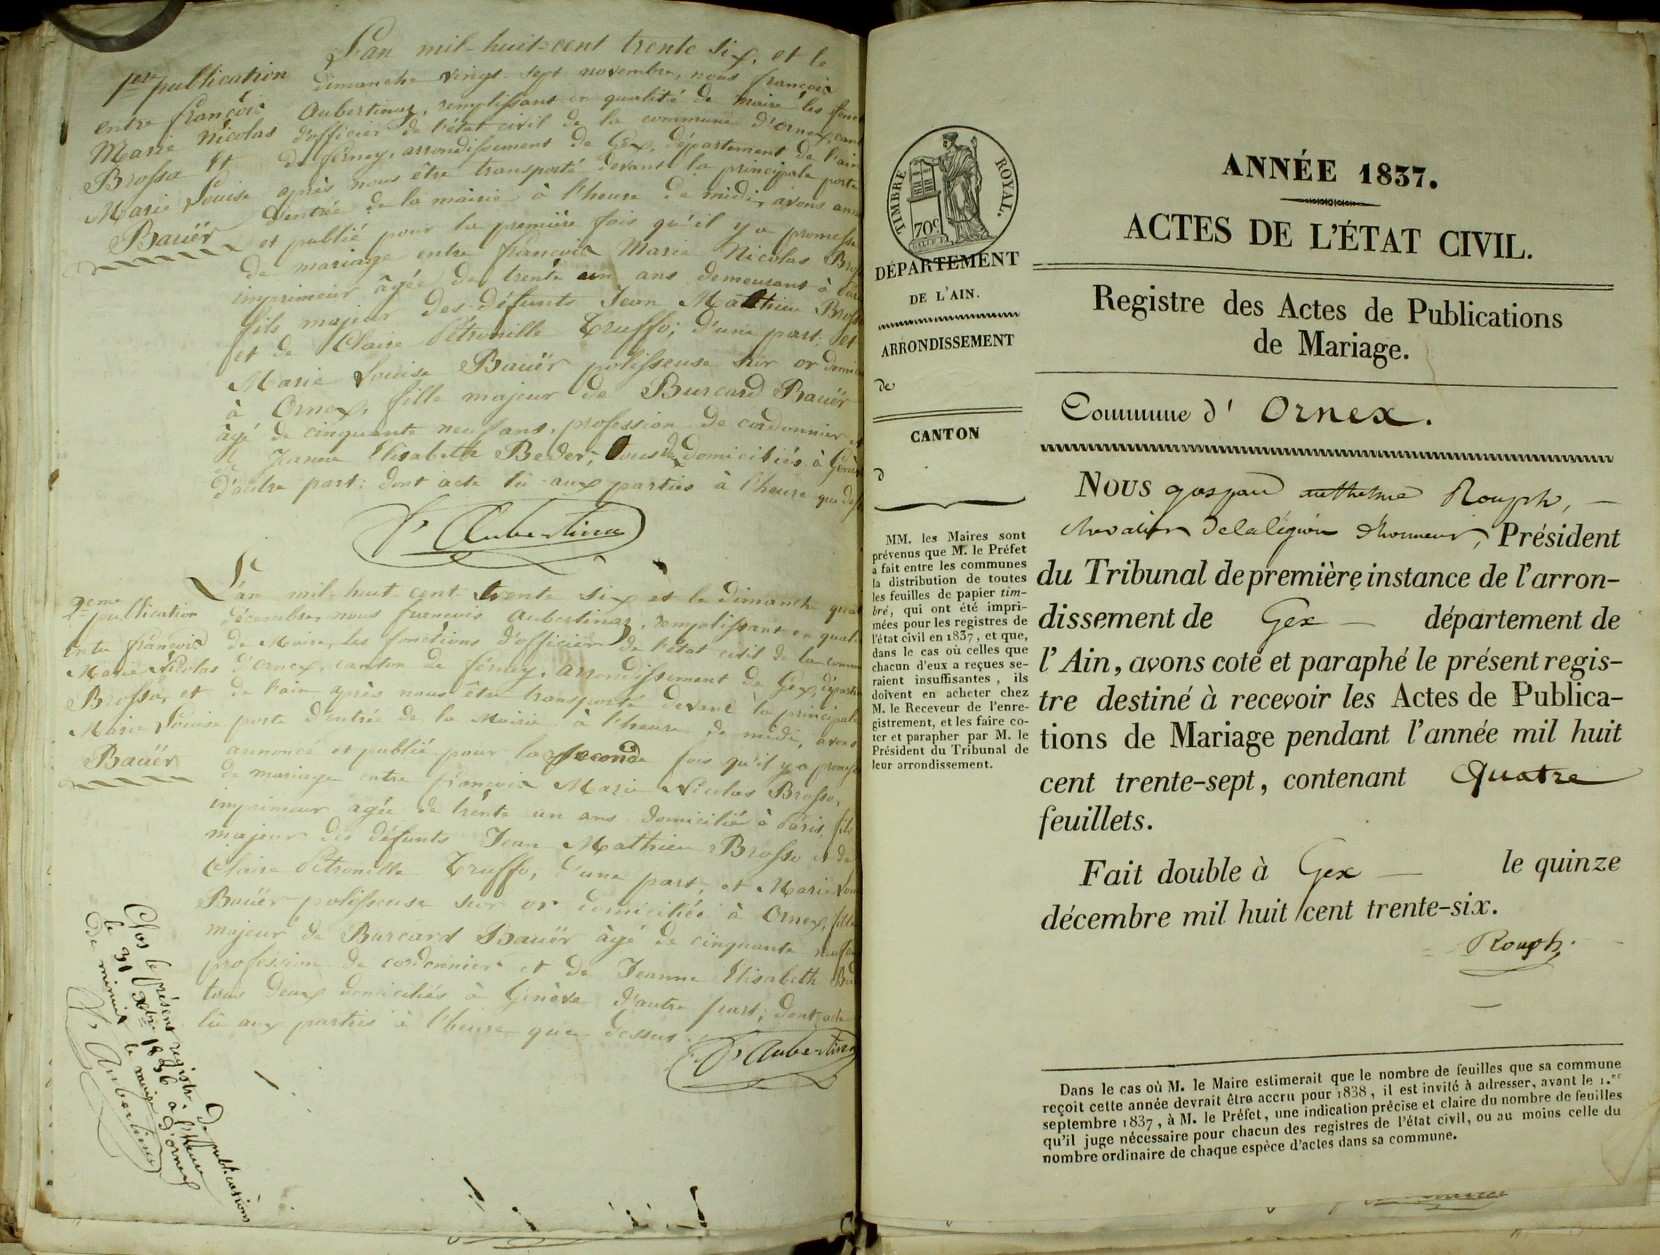 L'an mil-huit-cent trente six, et le
1ere publication
entre françois
Marie Nicolas
Brosse et
Marie Louise
Bauër
dimanche vingt-sept novembre, nous françois
Aubertinaz, remplissant en qualité de maire les fonc
d'officier de l'état civil de la commune d'Ornex, can
de ferney, arrondissement de Gex, département de l'ain
après nous être transporté devant la principale porte
d'entrée de la mairie à l'heure de midi, avons ann
et publié pour la première fois qu'il y a promesse
de mariage entre françois Marie Nicolas Bros
imprimeur âgée de trente un ans demeurant à
fils majeur des défunts Jean Matthieu Bross
et de Claire Pétronille Truffo; d'une part. et
Marie Louise Bauër polisseuse sur or domi
à Ornex, fille majeur de Burcard Bauër
âgé de cinquante neuf ans, profession de cordonnier et
de Jeanne Elisabeth Beder, tous 2 domiciliés à Genè
d'autre part: dont acte lû aux parties à l'heure que des
f. Aubertinaz
2eme publication
entre françois
Marie Nicolas
Brosse, et
Marie Louise
Bauër
L'an mil-huit cent trente six et le dimanche quat
décembre, nous francois Aubertinaz, remplissant en quali
de Maire, les fonctions d'officier de l'état civil de la comm
d'Ornex, canton de ferney, arrondissement de Gex, départ
de l'ain après nous être transporté devant la principale
porte d'entrée de la Mairie à l'heure de midi, avons
annoncé et publié pour la seconde fois qu'il y a promess
de mariage entre françois Marie Nicolas Brosse,
imprimeur agée de trente un ans domicilié à Paris, fils
majeur des défunts Jean Mathieu Brosse et de
Claire Pétronille Truffo, d'une part; et Marie Lou
Bauër polisseuse sur or domiciliée à Ornex, fille
majeur de Burcard Bauër âgé de cinquante neuf an
profession de cordonnier et de Jeanne Elisabeth Bed
tous deux domiciliés à Genève d'autre part; dont acte
lû aux parties à l'heure que dessus.
f. Aubertinaz
Clos le présent registre de publications
le 31 Xbre 1836 à l'heure
de minuit le maire d'ornex
f. Aubertinaz
TIMBRE ROYAL.
70c
DÉPARTEMENT
DE L'AIN.
ARRONDISSEMENT
de
CANTON
d
MM. les Maires sont
prévenus que M. le Préfet
a fait entre les communes
la distribution de toutes
les feuilles de papier tim-
bré, qui ont été impri-
mées pour les registres de
l'état civil en 1837, et que,
dans le cas où celles que
chacun d'eux a reçues se-
raient insuffisantes, ils
doivent en acheter chez
M. le Receveur de l'enre-
gistrement, et les faire co-
ter et parapher par M. le
Président du Tribunal de
leur arrondissement.
ANNÉE 1837.
ACTES DE L'ÉTAT CIVIL.
Registre des Actes de Publications
de Mariage.
Commune d' Ornex.
Nous gaspard anthelme Rouph,
chevalier de la légion d'honneur, Président
du Tribunal de première instance de l'arron-
dissement de Gex département de
l'Ain, avons coté et paraphé le présent regis-
tre destiné à recevoir les Actes de Publica-
tions de Mariage pendant l'année mil huit
cent trente-sept, contenant Quatre
feuillets.
Fait double à Gex le quinze
décembre mil huit cent trente-six.
Rouph.
Dans le cas où M. le Maire estimerait que le nombre de feuilles que sa commune
reçoit cette année devrait être accru pour 1838, il est invité à adresser, avant le 1.er
septembre 1837, à M. le Préfet, une indication précise et claire du nombre de feuilles
qu'il juge nécessaire pour chacun des registres de l'état civil, ou au moins celle du
nombre ordinaire de chaque espèce d'actes dans sa commune.